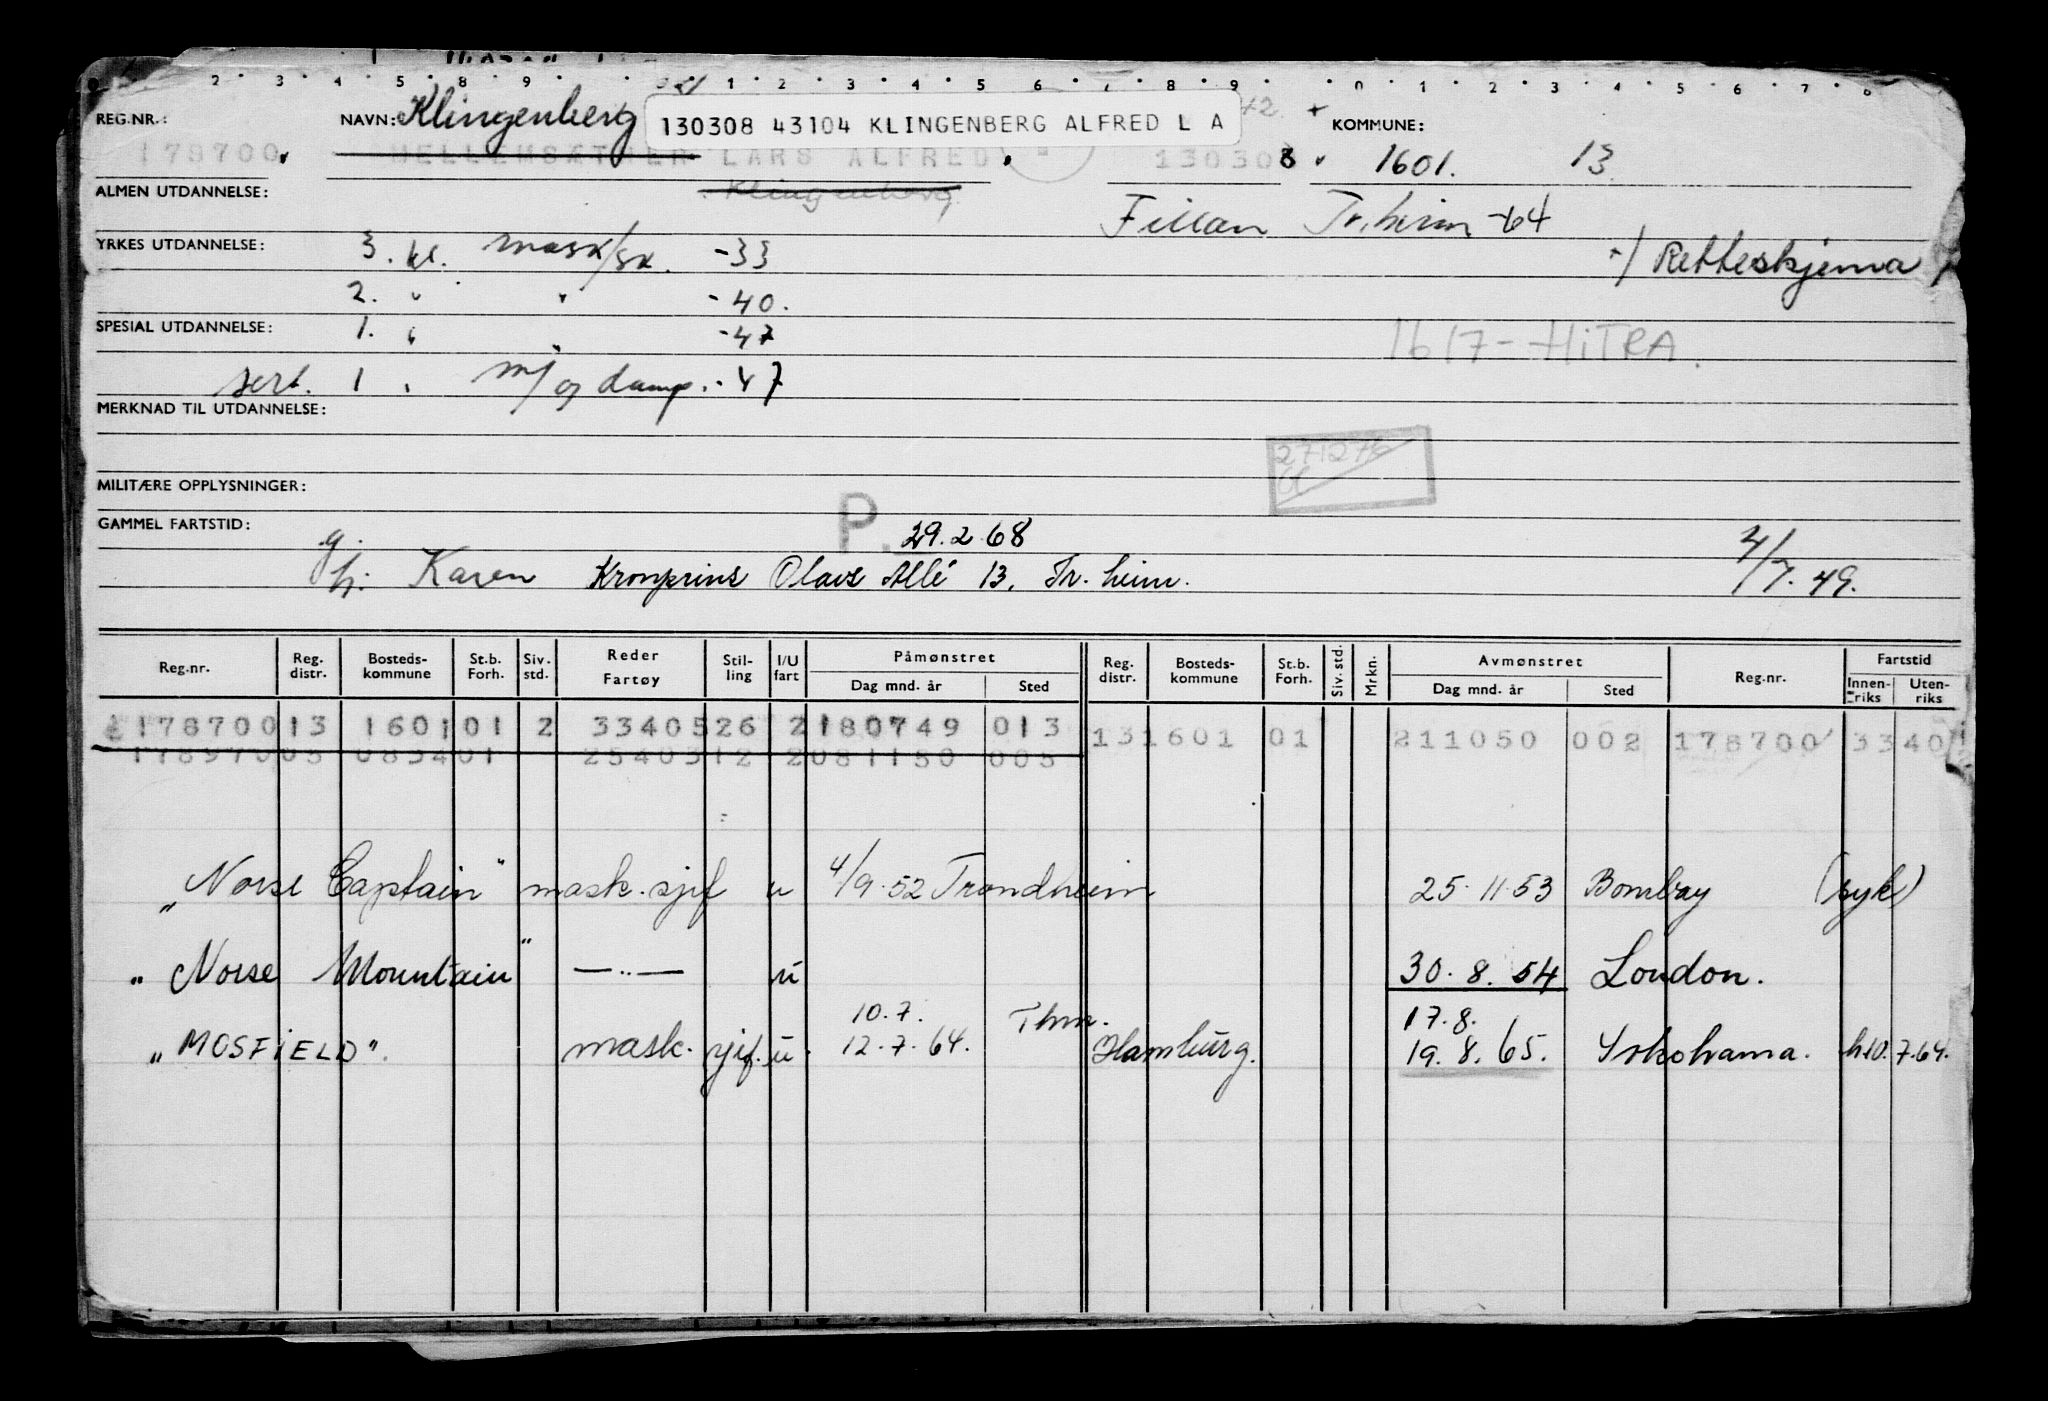 2 3 4 5 8 9 1 2 3 4 5 6 7 8 9 0 1 2 3 4 5 6 7 8
REG.NR.: NAVN: Klingenberg 130308 43104 KLINGENBERG ALFRED L A KOMMUNE:
178700 HELLEMSÆTHER LARS ALFRED 130308 1601. 13
ALMEN UTDANNELSE: Klingenberg
Fillan Tr.heim -64
YRKES UTDANNELSE: 3. kl. mask/sk. -33
-/ Retteskjema
2. " " -40.
SPESIAL UTDANNELSE: 1. " " -47
1617 - HITRA.
sert. 1 " m/ og damp. -47
MERKNAD TIL UTDANNELSE:
271276
MILITÆRE OPPLYSNINGER:
GAMMEL FARTSTID: P. 29.2.68
g.
h. Karen Kronprins Olavs Allé 13, Tr.heim. 4/7.49.
Reg.nr. Reg. distr. Bosteds-kommune St.b. Forh. Siv. std. Reder Fartøy Stil-ling I/U fart Påmønstret Dag mnd. år Sted Reg. distr. Bosteds-kommune St.b. Forh. Siv. std. Mrkn. Avmønstret Dag mnd. år Sted Reg.nr. Fartstid Innen-riks Uten-riks
178700 13 1601 01 2 33405 26 2 180749 013 13 1601 01 211050 002 178700 33 40
178970 05 0834 01 25403 12 2 081150 005
"Norse Captain" mask.sjef u 4/9.52 Trondheim 25.11.53 Bombay (syk)
"Norse Mountain" —"— u 30.8.54 London.
10.7. Thm. 17.8.
"MOSFIELD". mask. sjef. u. 12.7.64. Hamburg. 19.8.65. Yokohama. h10.7.64.